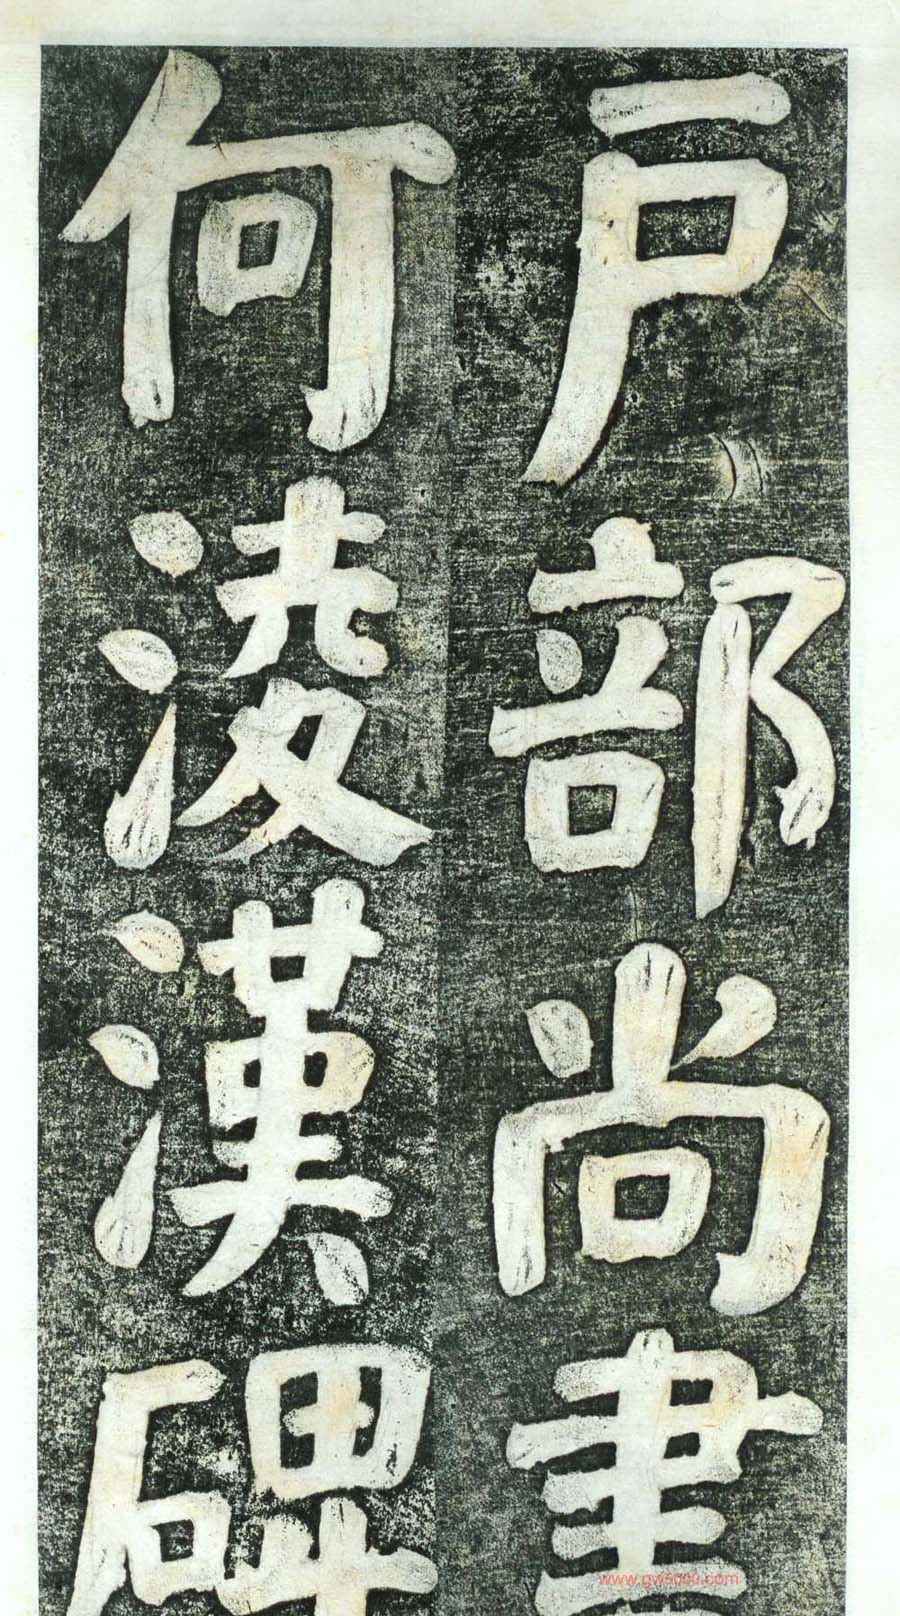 戶部尚書
何淩漢碑
www.gw5000.com